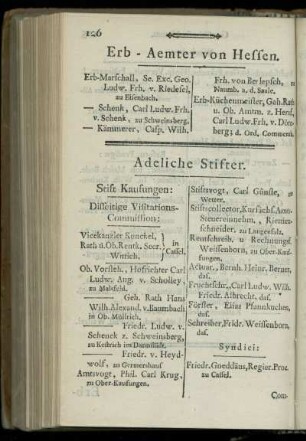 126
Erb-Aemter von Hessen.
Erb-Marschall, Se. Exc. Geo.
Ludw. Frh. v. Riedesel,
zu Eisenbach.
— Schenk, Carl Ludw. Frh.
v. Schenk, zu Schweinsberg.
— Kämmerer, Casp. Wilh.
Frh. von Berlepsch,
Naumb. a. d. Saale.
Erb-Küchenmeister, Geh. Rath
u. Ob. Amtm. z. Hersf.
Carl Ludw. Frh. v. Dörn-
berg; d. Ord. Commenth.
Adeliche Stifter.
Stift Kaufungen:
Disseitige Visitations-
Commission:
Vicekanzler Kunckel,
Rath u. Ob. Rentk. Secr.
Wittich,
in
Cassel.
Ob. Vorsteh., Hofrichter Carl
Ludw. Aug. v. Scholley,
zu Malsfeld.
— Geh. Rath Hans
Wilh. Alexand. v. Baumbach
in Ob. Möllrich.
— Friedr. Ludw. v.
Schenck z. Schweinsberg,
zu Kestrich im Darmstädt.
— Friedr. v. Heyd-
wolf, zu Germershaus
Amtsvogt, Phil. Carl Krug,
zu Ober-Kaufungen.
Stiftsvogt, Carl Günste,
Wetter.
Stiftscollector, Kursächs. Amts-
Steuereinnehm., Riemen-
schneider, zu Langensalz.
Rentschreib. u Rechnungsf.
Weissenborn, zu Ober-Kau-
fungen.
Actuar, Bernh. Heinr. Bernst,
das.
Fruchtschr., Carl Ludw. Wilh.
Friedr. Albrecht, das.
Förster, Elias Pfannkuchen,
das.
Schreiber, Fridr. Weissenborn,
das.
Syndici:
Friedr. Goeddäus, Regier. Proc.
zu Cassel.
Com-